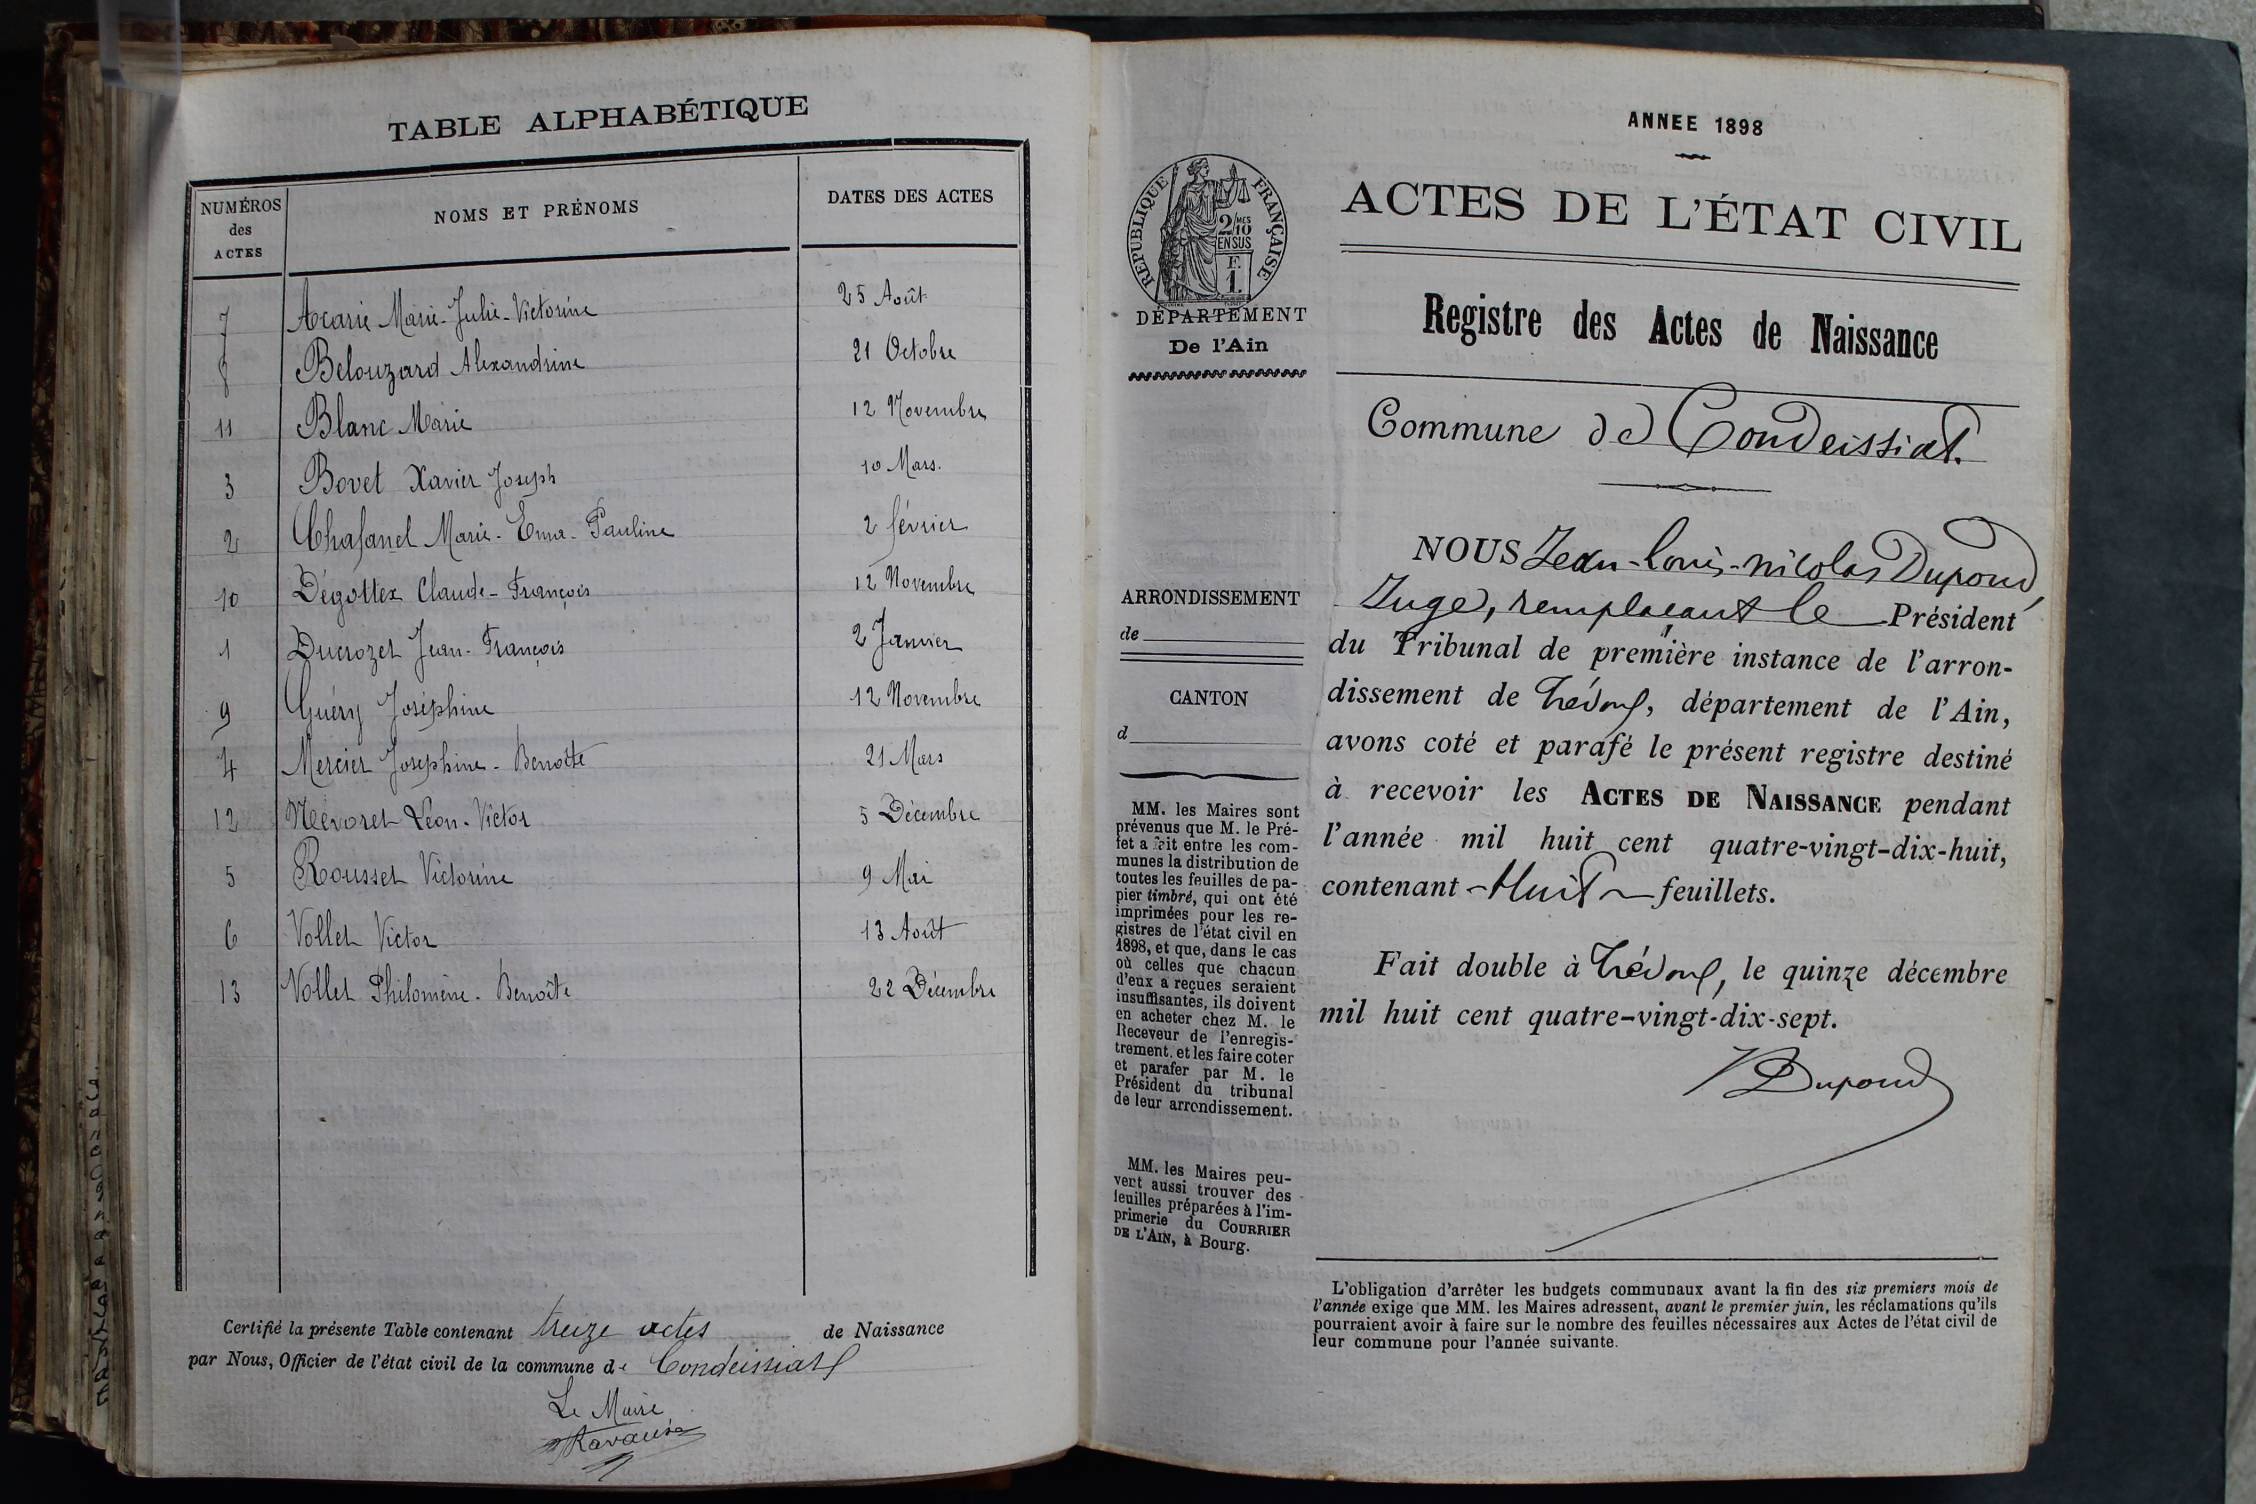 TABLE ALPHABÉTIQUE
NUMÉROS des ACTES
NOMS ET PRÉNOMS
DATES DES ACTES
7 Acarie Marie-Julie-Victorine 25 Août
8 Belouzard Alexandrine 21 Octobre
11 Blanc Marie 12 Novembre
3 Bovet Xavier Joseph 10 Mars.
2 Chafanel Marie-Ema-Pauline 2 février
10 Dégottex Claude-François 12 Novembre
1 Ducrozet Jean-François 2 Janvier
9 Guéry Joséphine 12 Novembre
4 Mercier Joséphine-Benoîte 21 Mars
12 Névoret Léon-Victor 5 Décembre
5 Rousset Victorine 9 Mai
6 Vollet Victor 13 Août
13 Vollet Philomène-Benoîte 22 Décembre
Certifié la présente Table contenant treize actes de Naissance
par Nous, Officier de l'état civil de la commune de Condeissiat
Le Maire
ANNEE 1898
RÉPUBLIQUE FRANÇAISE
2/10 MES
EN SUS
F.
1.
DÉPARTEMENT
De l'Ain
ACTES DE L'ÉTAT CIVIL
Registre des Actes de Naissance
Commune de Condeissiat.
ARRONDISSEMENT
de
CANTON
d
MM. les Maires sont
prévenus que M. le Pré-
fet a fait entre les com-
munes la distribution de
toutes les feuilles de pa-
pier timbré, qui ont été
imprimées pour les re-
gistres de l'état civil en
1898, et que, dans le cas
où celles que chacun
d'eux a reçues seraient
insuffisantes, ils doivent
en acheter chez M. le
Receveur de l'enregis-
trement, et les faire coter
et parafer par M. le
Président du tribunal
de leur arrondissement.
MM. les Maires peu-
vent aussi trouver des
feuilles préparées à l'im-
primerie du COURRIER
DE L'AIN, à Bourg.
NOUS Jean-Louis-Nicolas Dupond,
Juge, remplaçant le Président
du Tribunal de première instance de l'arron-
dissement de Trévoux, département de l'Ain,
avons coté et parafé le présent registre destiné
à recevoir les ACTES DE NAISSANCE pendant
l'année mil huit cent quatre-vingt-dix-huit,
contenant Huit feuillets.
Fait double à Trévoux, le quinze décembre
mil huit cent quatre-vingt-dix-sept.
Dupond
L'obligation d'arrêter les budgets communaux avant la fin des six premiers mois de
l'année exige que MM. les Maires adressent, avant le premier juin, les réclamations qu'ils
pourraient avoir à faire sur le nombre des feuilles nécessaires aux Actes de l'état civil de
leur commune pour l'année suivante.